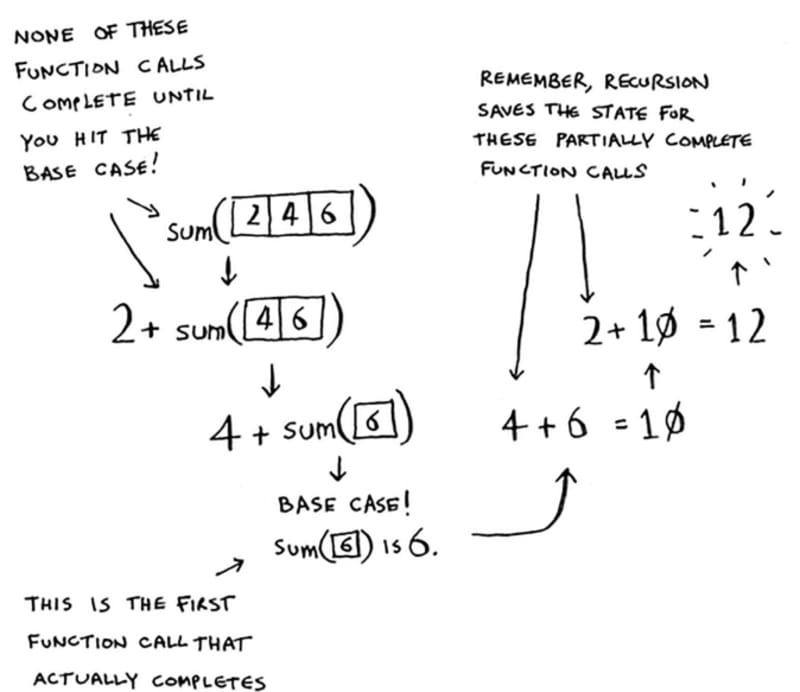 NONE OF THESE
FUNCTION CALLS
COMPLETE UNTIL
YOU HIT THE
BASE CASE!
sum( 2 4 6 )
2 + sum( 4 6 )
4 + sum( 6 )
BASE CASE!
sum( 6 ) IS 6.
THIS IS THE FIRST
FUNCTION CALL THAT
ACTUALLY COMPLETES
REMEMBER, RECURSION
SAVES THE STATE FOR
THESE PARTIALLY COMPLETE
FUNCTION CALLS
12
2 + 10 = 12
4 + 6 = 10